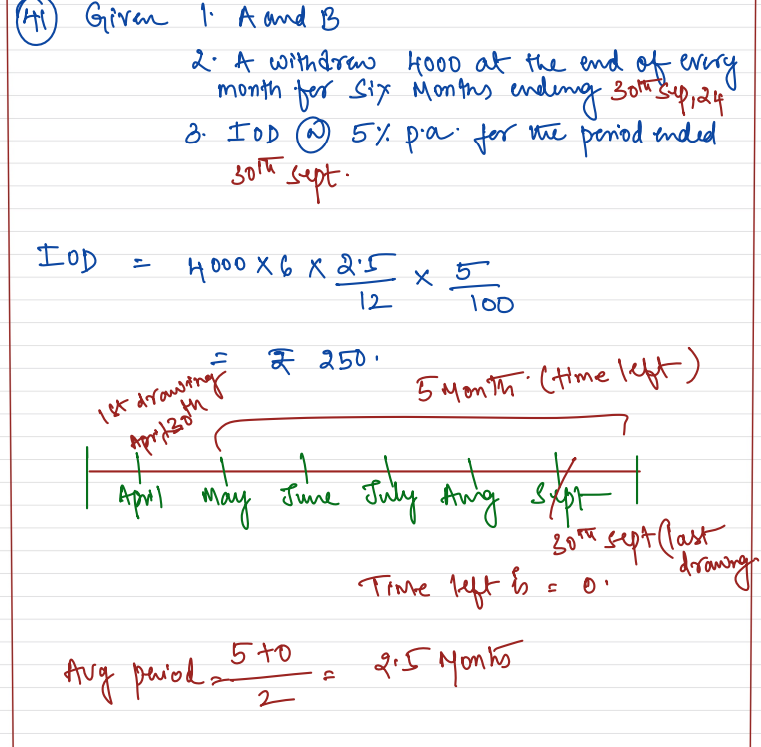 41 Given 1. A and B
2. A withdrew 4000 at the end of every
month for Six Months ending 30th Sep, 24
3. IOD @ 5% p.a. for the period ended
30th sept.
IOD = 4000 X 6 X 2.5/12 X 5/100
= ₹ 250.
1st drawing
April 30th
5 Month (time left)
April May June July Aug Sept
30th sept (last
drawing
Time left is = 0.
Avg period = 5+0/2 = 2.5 Months